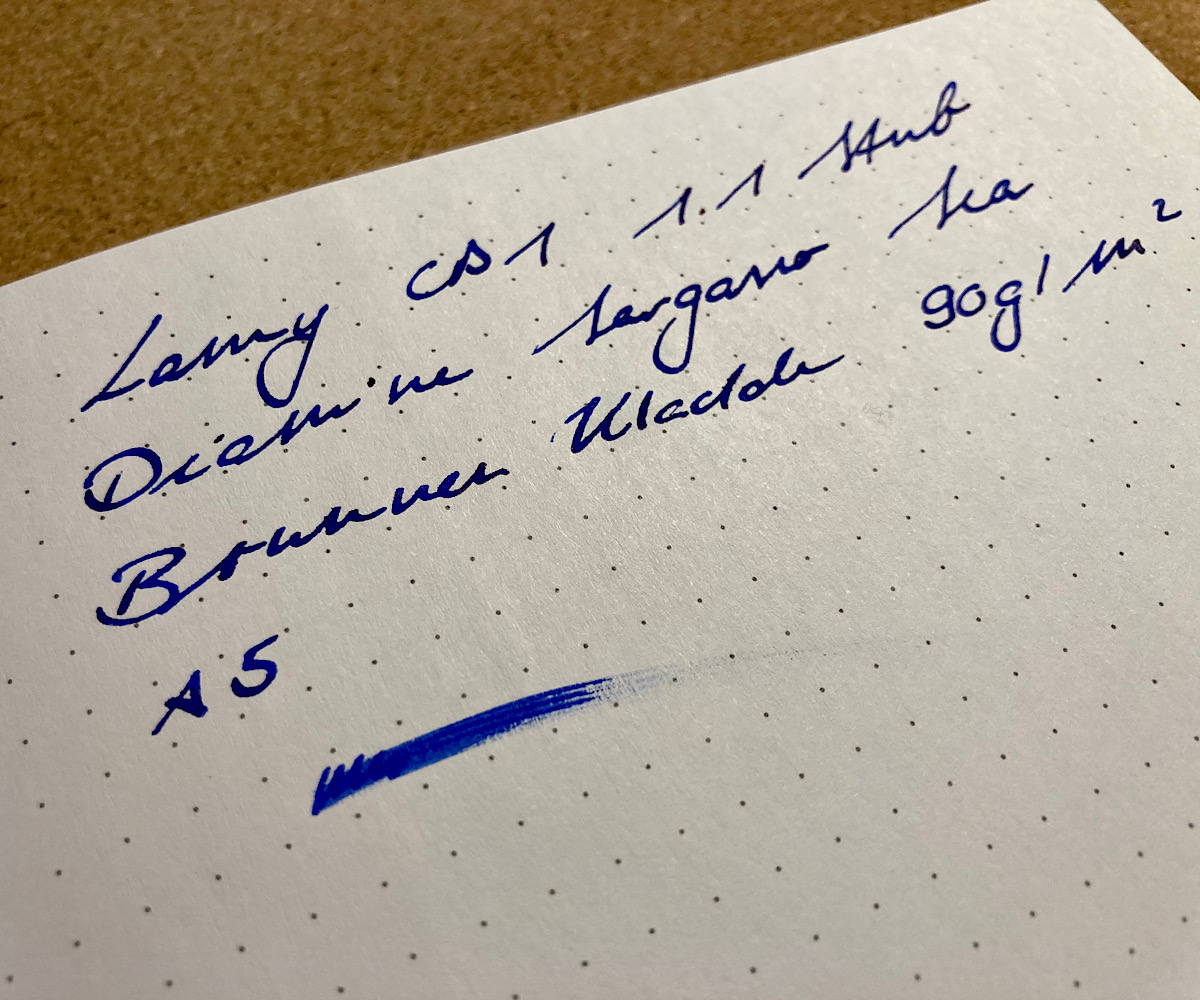 Lamy CP1 1.1 Stub
Diamine Sargasso Sea
Brunnen Kladde 90g/m²
A5